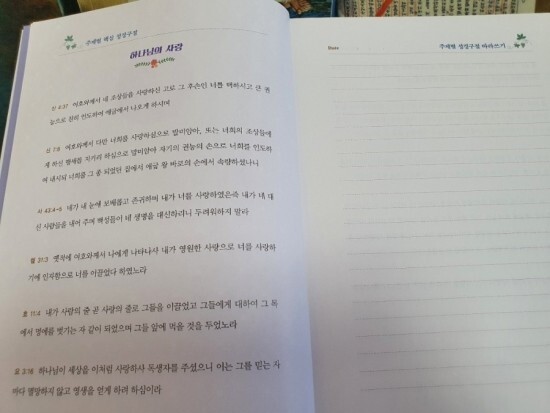 주제별 핵심 성경구절
하나님의 사랑
신 4:37 여호와께서 네 조상들을 사랑하신 고로 그 후손인 너를 택하시고 큰 권
능으로 친히 인도하여 애굽에서 나오게 하시며
신 7:8 여호와께서 다만 너희를 사랑하심으로 말미암아, 또는 너희의 조상들에
게 하신 맹세를 지키려 하심으로 말미암아 자기의 권능의 손으로 너희를 인도하
여 내시되 너희를 그 종 되었던 집에서 애굽 왕 바로의 손에서 속량하셨나니
사 43:4-5 네가 내 눈에 보배롭고 존귀하며 내가 너를 사랑하였은즉 내가 네 대
신 사람들을 내어 주며 백성들이 네 생명을 대신하리니 두려워하지 말라
렘 31:3 옛적에 여호와께서 나에게 나타나사 내가 영원한 사랑으로 너를 사랑하
기에 인자함으로 너를 이끌었다 하였노라
호 11:4 내가 사람의 줄 곧 사랑의 줄로 그들을 이끌었고 그들에게 대하여 그 목
에서 멍에를 벗기는 자 같이 되었으며 그들 앞에 먹을 것을 두었노라
요 3:16 하나님이 세상을 이처럼 사랑하사 독생자를 주셨으니 이는 그를 믿는 자
마다 멸망하지 않고 영생을 얻게 하려 하심이라
Date
주제별 성경구절 따라쓰기